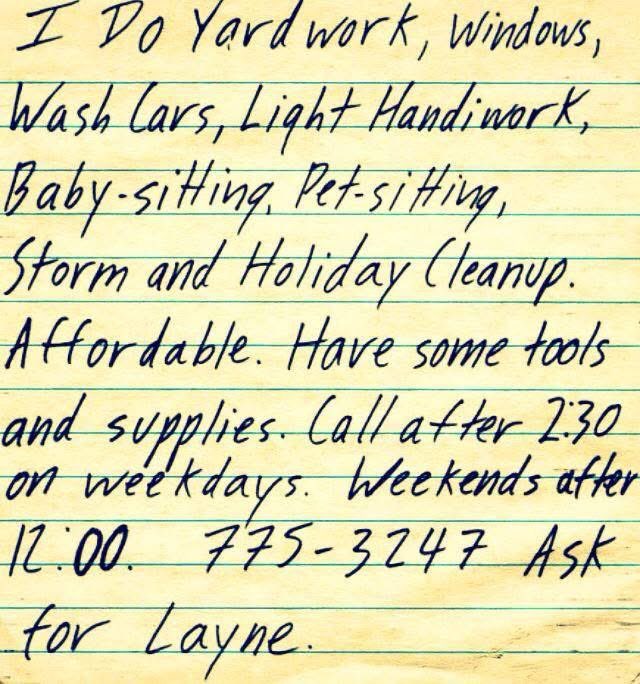 I Do Yardwork, Windows,
Wash Cars, Light Handiwork,
Baby-sitting, Pet-sitting,
Storm and Holiday Cleanup.
Affordable. Have some tools
and supplies. Call after 2:30
on weekdays. Weekends after
12:00. 775-3247 Ask
for Layne.